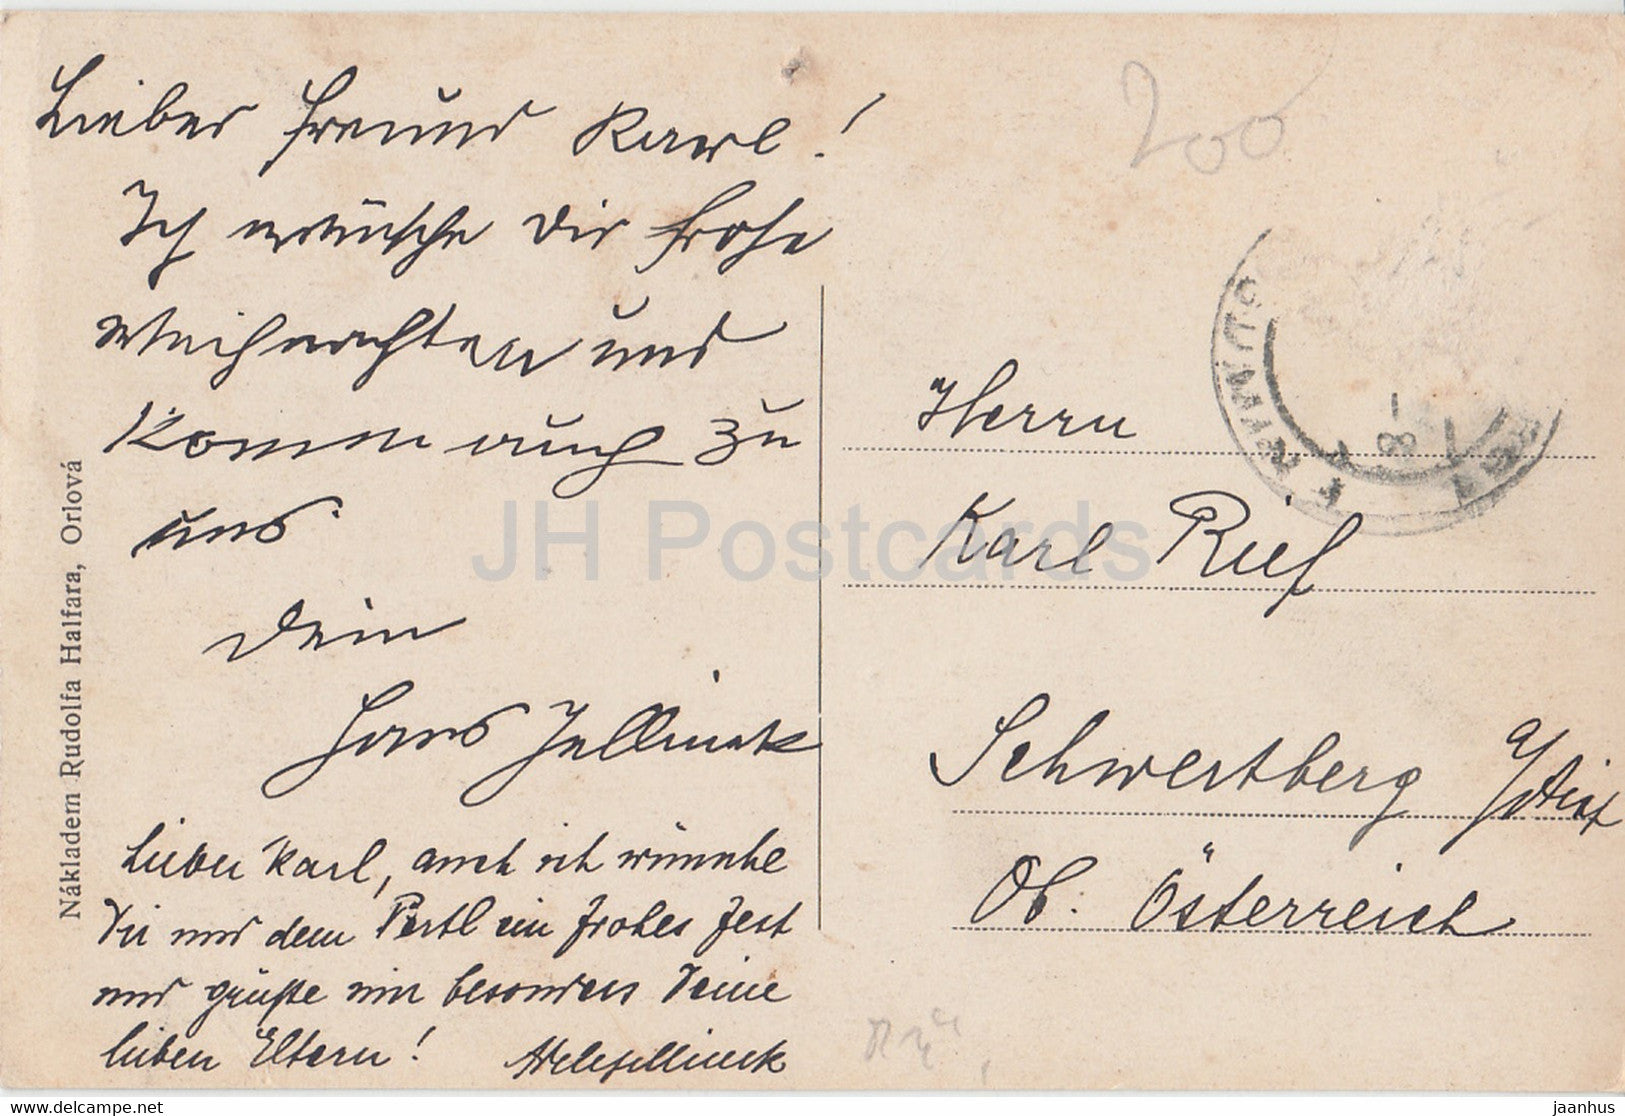 Lieber Freund Karl!
Ich wünsche Dir frohe
Weihnachten und
komm auch zu
uns.
Dein
Hans Jellinek
Lieber Karl, auch ich wünsche
Dir und dem Pertl ein frohes Fest
und grüße besonders Deine
lieben Eltern! Jellinek
Nákladem Rudolfa Halfara, Orlová
200
Herrn
Karl Rief
Schwertberg
Ob. Österreich
JH Postcards
jh-postcards.com
jaanhus